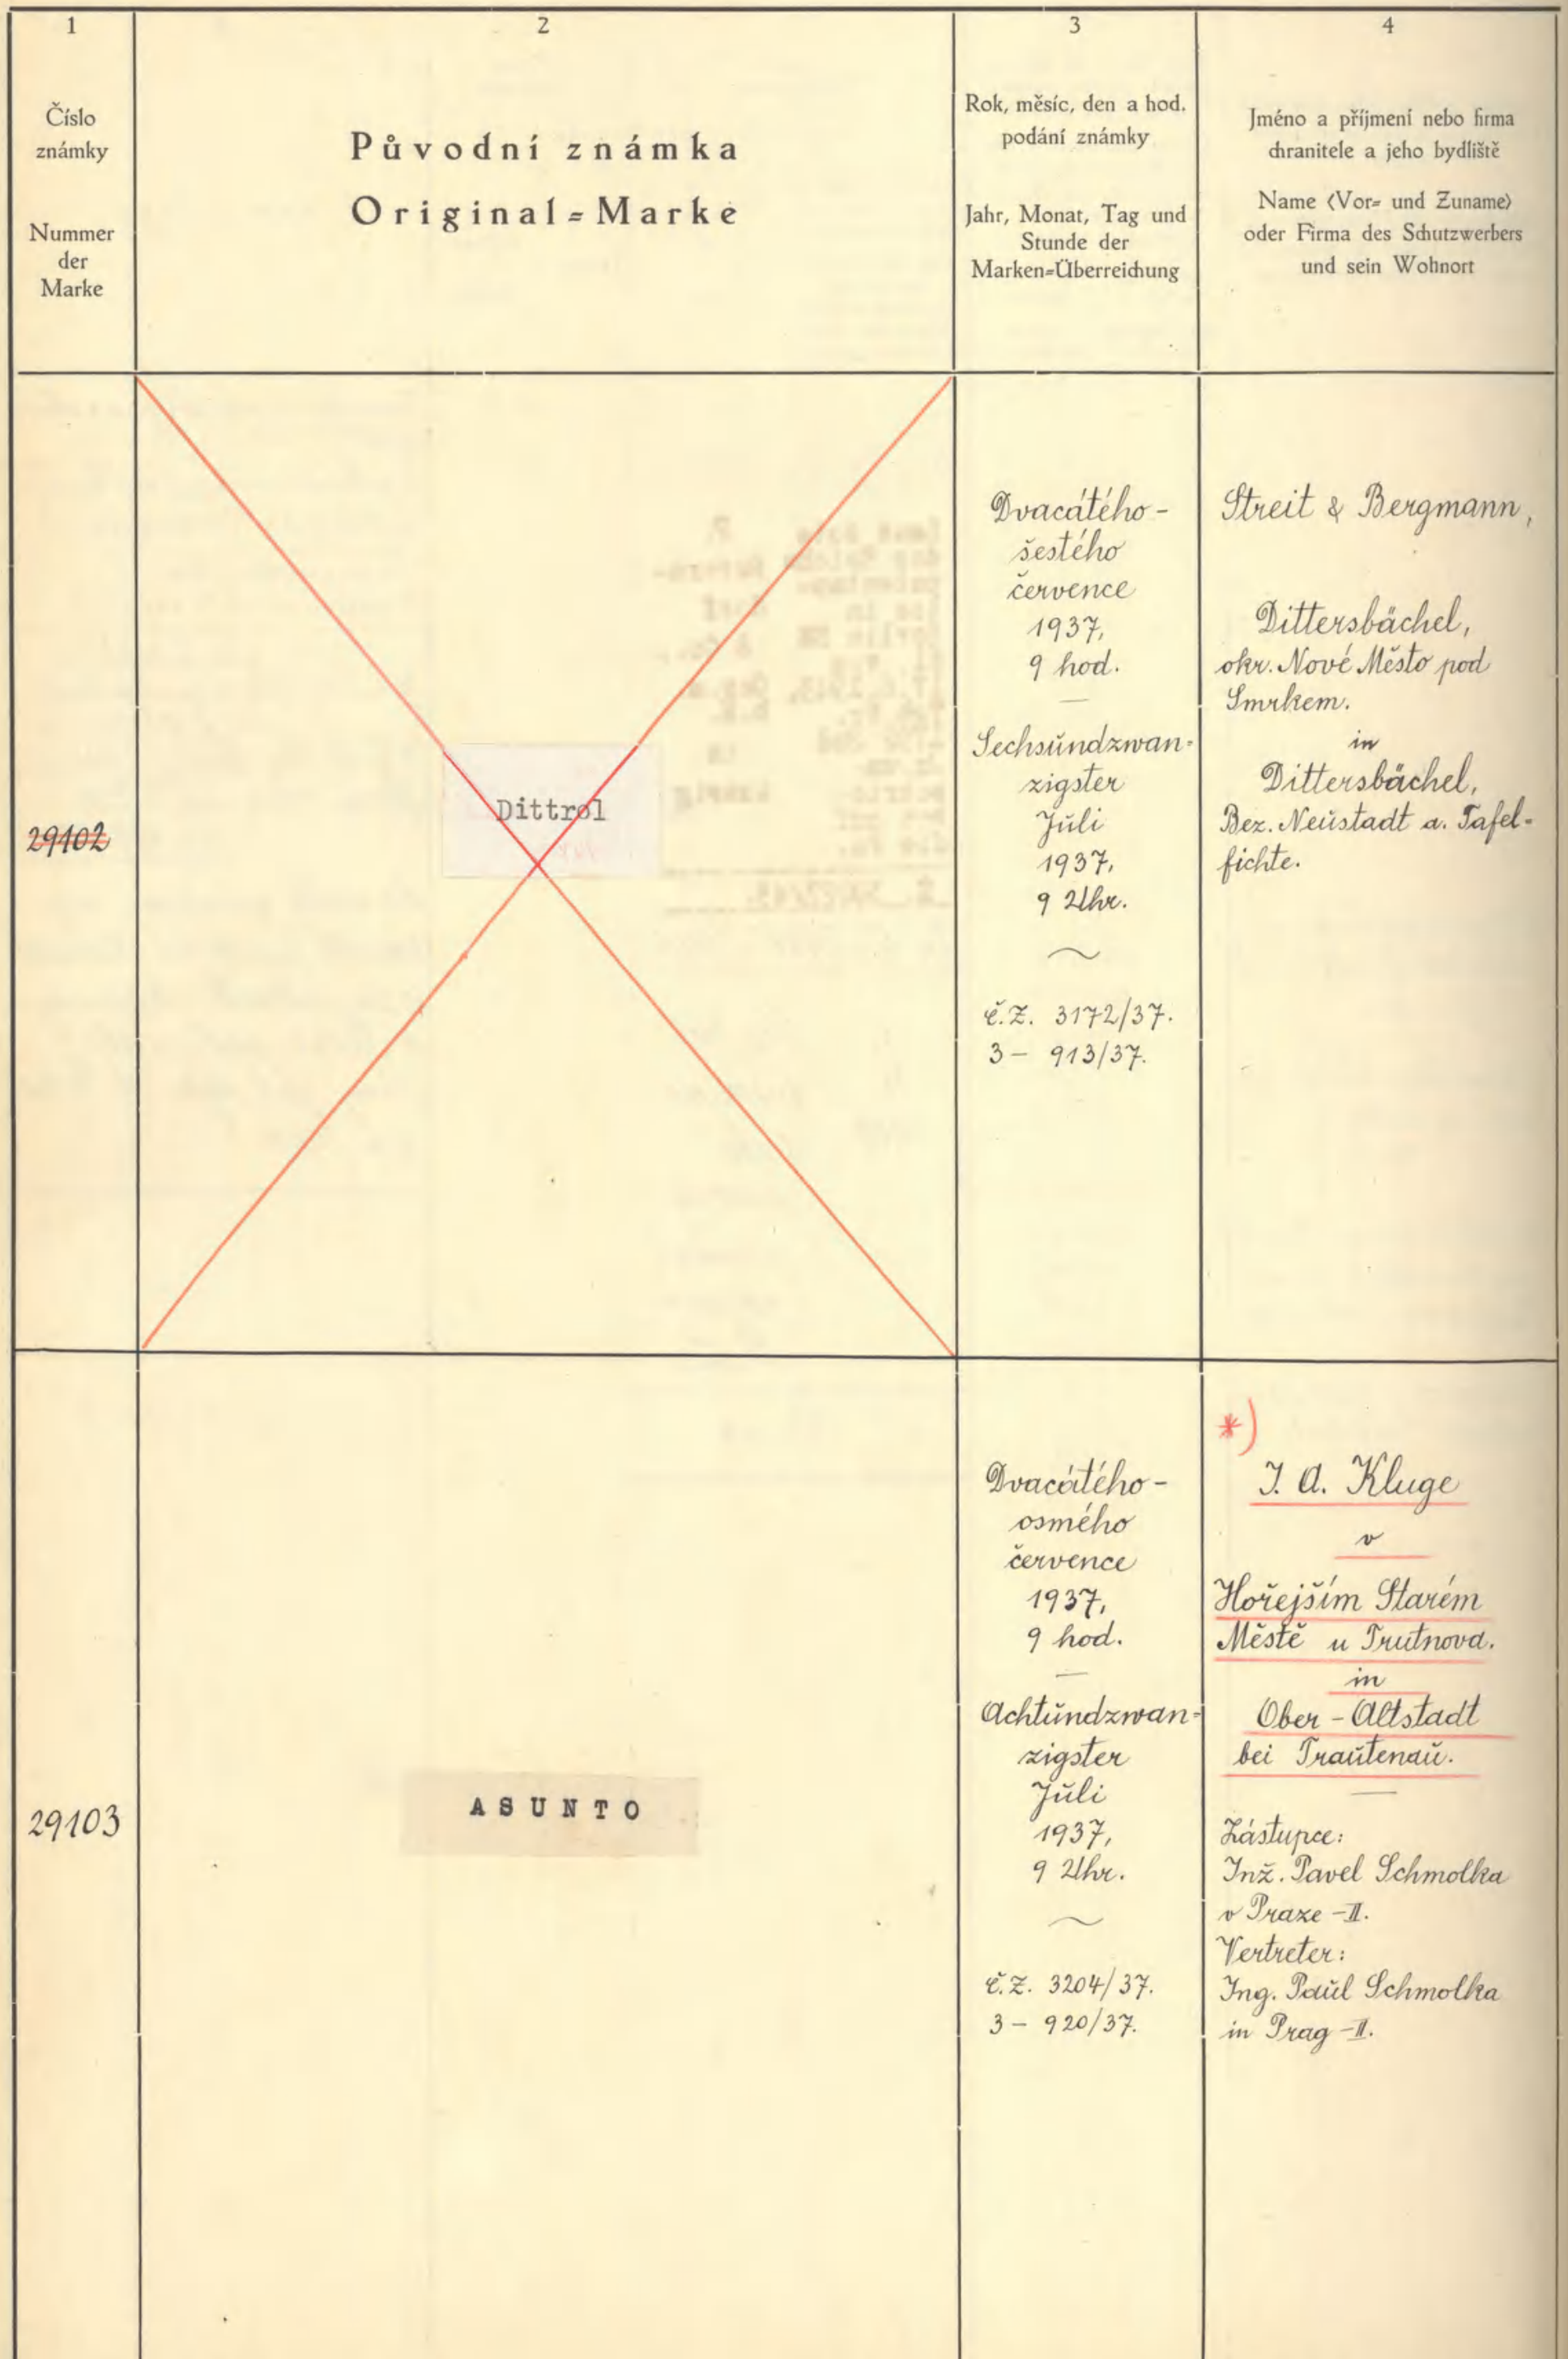 1
Číslo
známky
Nummer
der
Marke
2
Původní známka
Original=Marke
3
Rok, měsíc, den a hod.
podání známky
Jahr, Monat, Tag und
Stunde der
Marken=Überreichung
4
Jméno a příjmení nebo firma
chranitele a jeho bydliště
Name (Vor= und Zuname)
oder Firma des Schutzwerbers
und sein Wohnort
29102
Dittrol
Dvacátého-
šestého
července
1937,
9 hod.
Sechsundzwan-
zigster
Juli
1937,
9 Uhr.
č.Z. 3172/37.
3- 913/37.
Streit & Bergmann,
Dittersbächel,
okr. Nové Město pod
Smrkem.
in
Dittersbächel,
Bez. Neustadt a. Tafel-
fichte.
29103
ASUNTO
Dvacátého-
osmého
července
1937,
9 hod.
Achtundzwan-
zigster
Juli
1937,
9 Uhr.
č.Z. 3204/37.
3- 920/37.
*)
J. A. Kluge
v
Hořejším Starém
Městě u Trutnova.
in
Ober-Altstadt
bei Trautenau.
Zástupce:
Inž. Pavel Schmolka
v Praze-II.
Vertreter:
Ing. Paul Schmolka
in Prag-II.